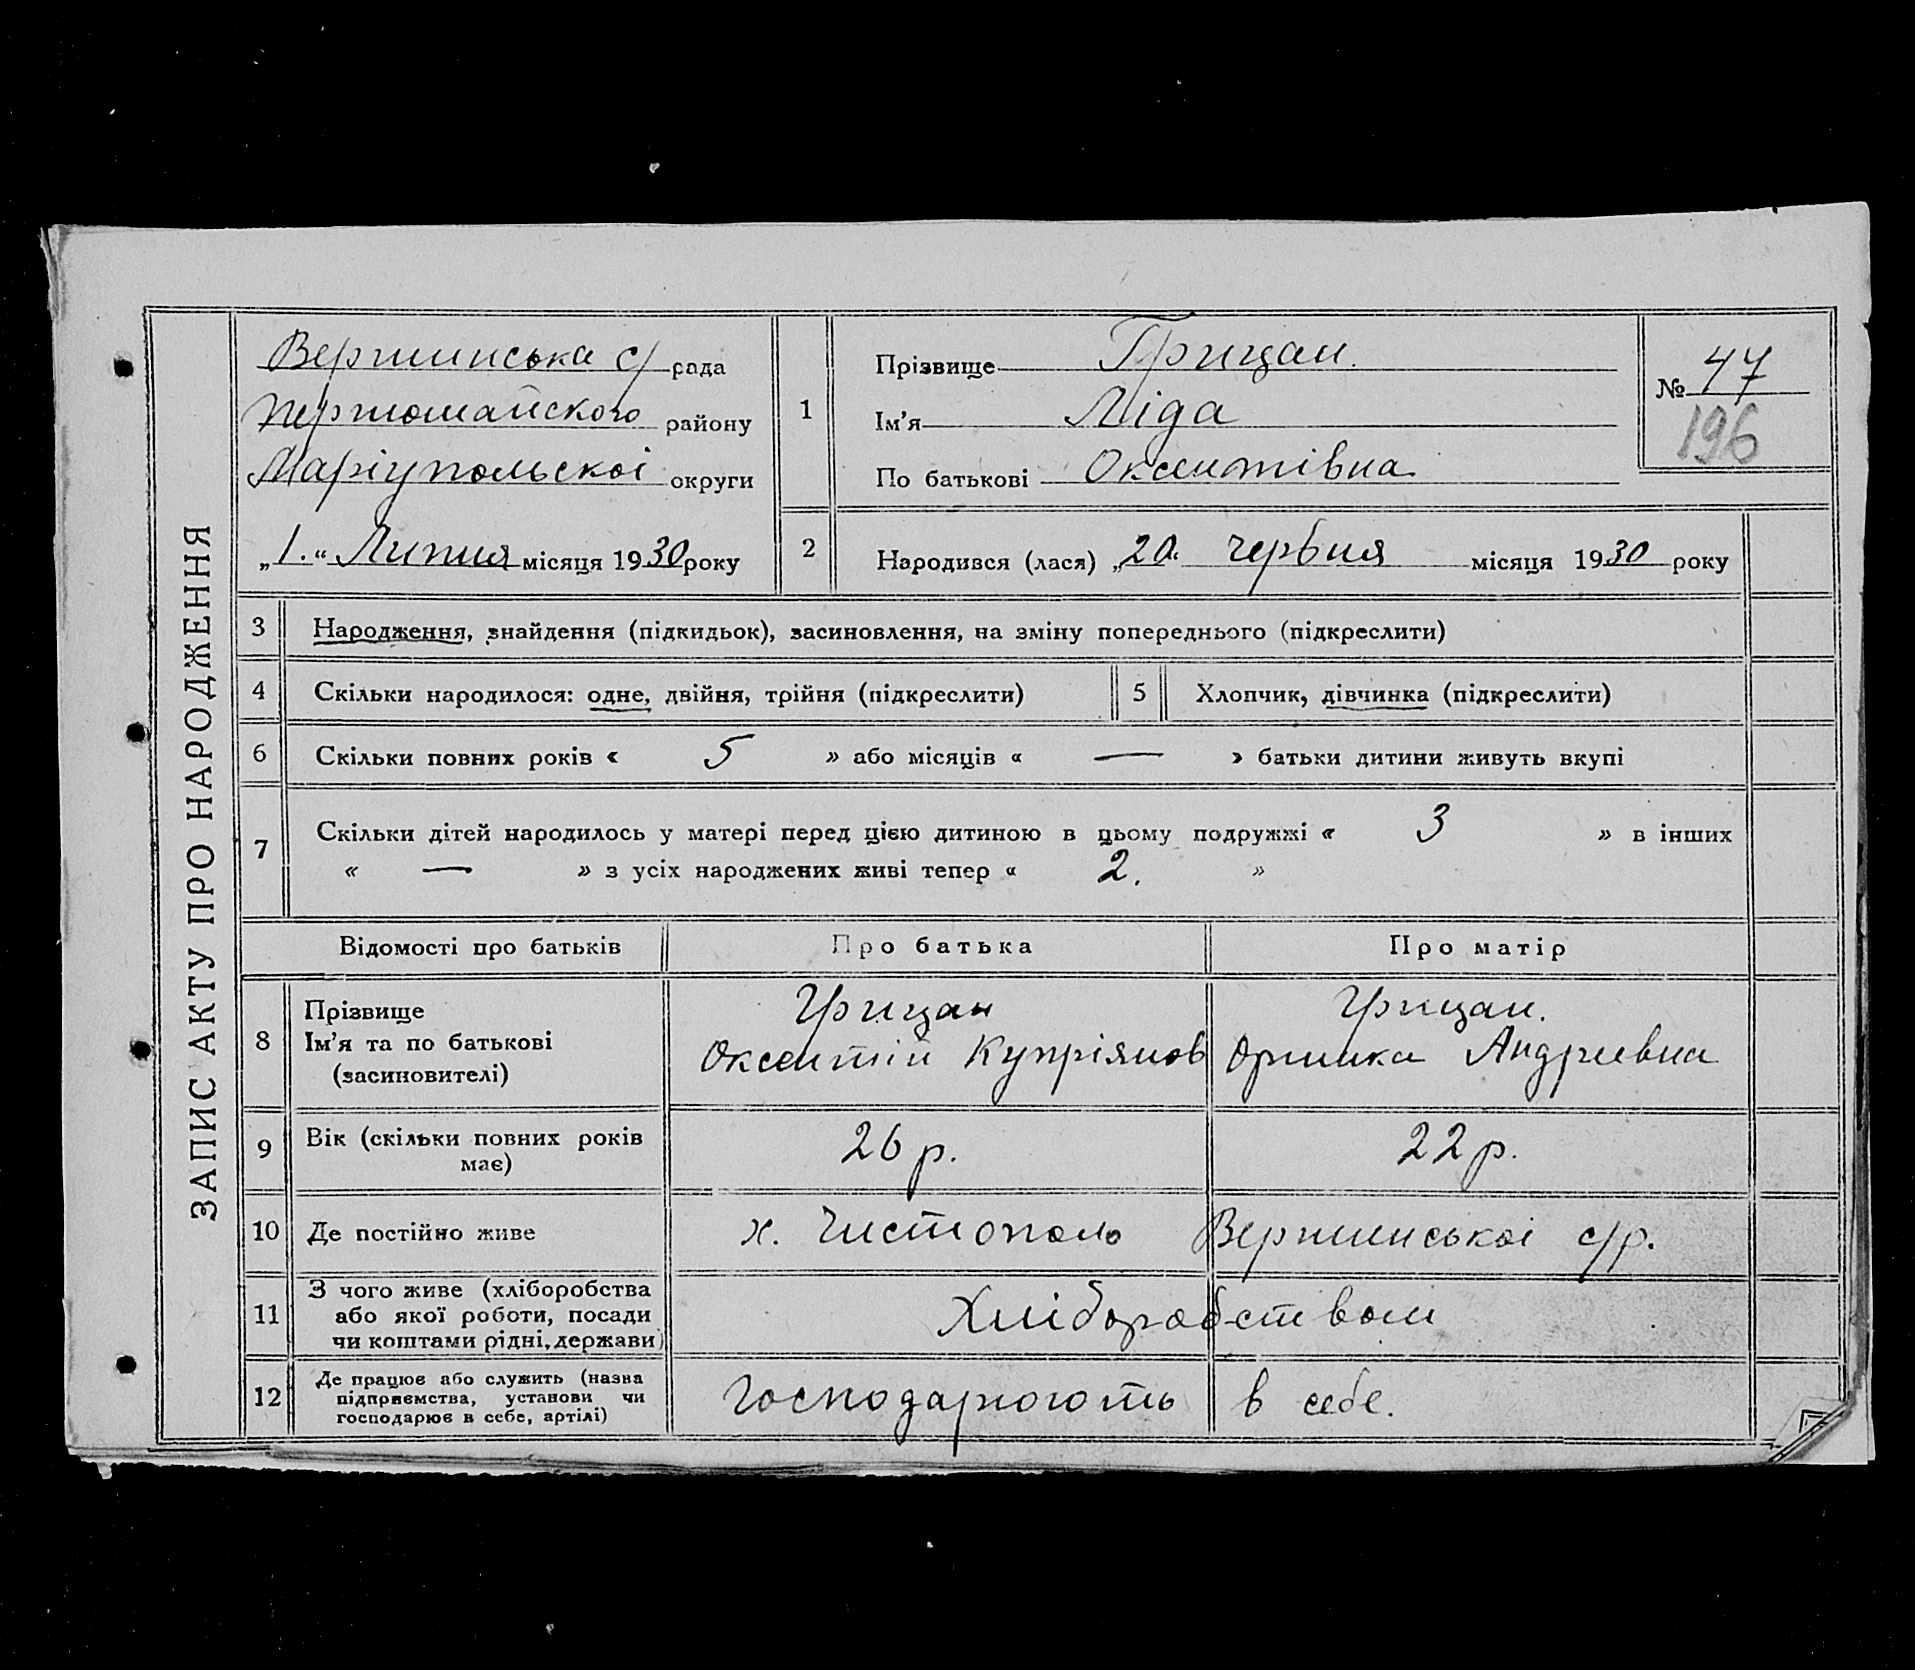 ЗАПИС АКТУ ПРО НАРОДЖЕННЯ
Вершинська с/рада
Першомайского району
Маріупольскоі округи
„1.“ Липня місяця 1930 року
1
Прізвище Грицан.
Ім'я Ліда
По батькові Оксентівна
№ 47
196
2
Народився (лася) „20“ червня місяця 1930 року
3 Народження, знайдення (підкидьок), засиновлення, на зміну попереднього (підкреслити)
4 Скільки народилося: одне, двійня, трійня (підкреслити)
5 Хлопчик, дівчинка (підкреслити)
6 Скільки повних років « 5 » або місяців « — » батьки дитини живуть вкупі
7 Скільки дітей народилось у матері перед цією дитиною в цьому подружжі « 3 » в інших
« — » з усіх народжених живі тепер « 2. »
Відомості про батьків Про батька Про матір
8 Прізвище
Ім'я та по батькові
(засиновителі)
Грицан
Оксентій Купріянов
Грицан.
Оришка Андриевна
9 Вік (скільки повних років
має)
26 р. 22 р.
10 Де постійно живе х. Чистополь Вершинськоі с/р.
11 З чого живе (хліборобства
або якої роботи, посади
чи коштами рідні, держави)
Хліборобством
12 Де працює або служить (назва
підприємства, установи чи
господарює в себе, артілі)
Господарюють в себе.